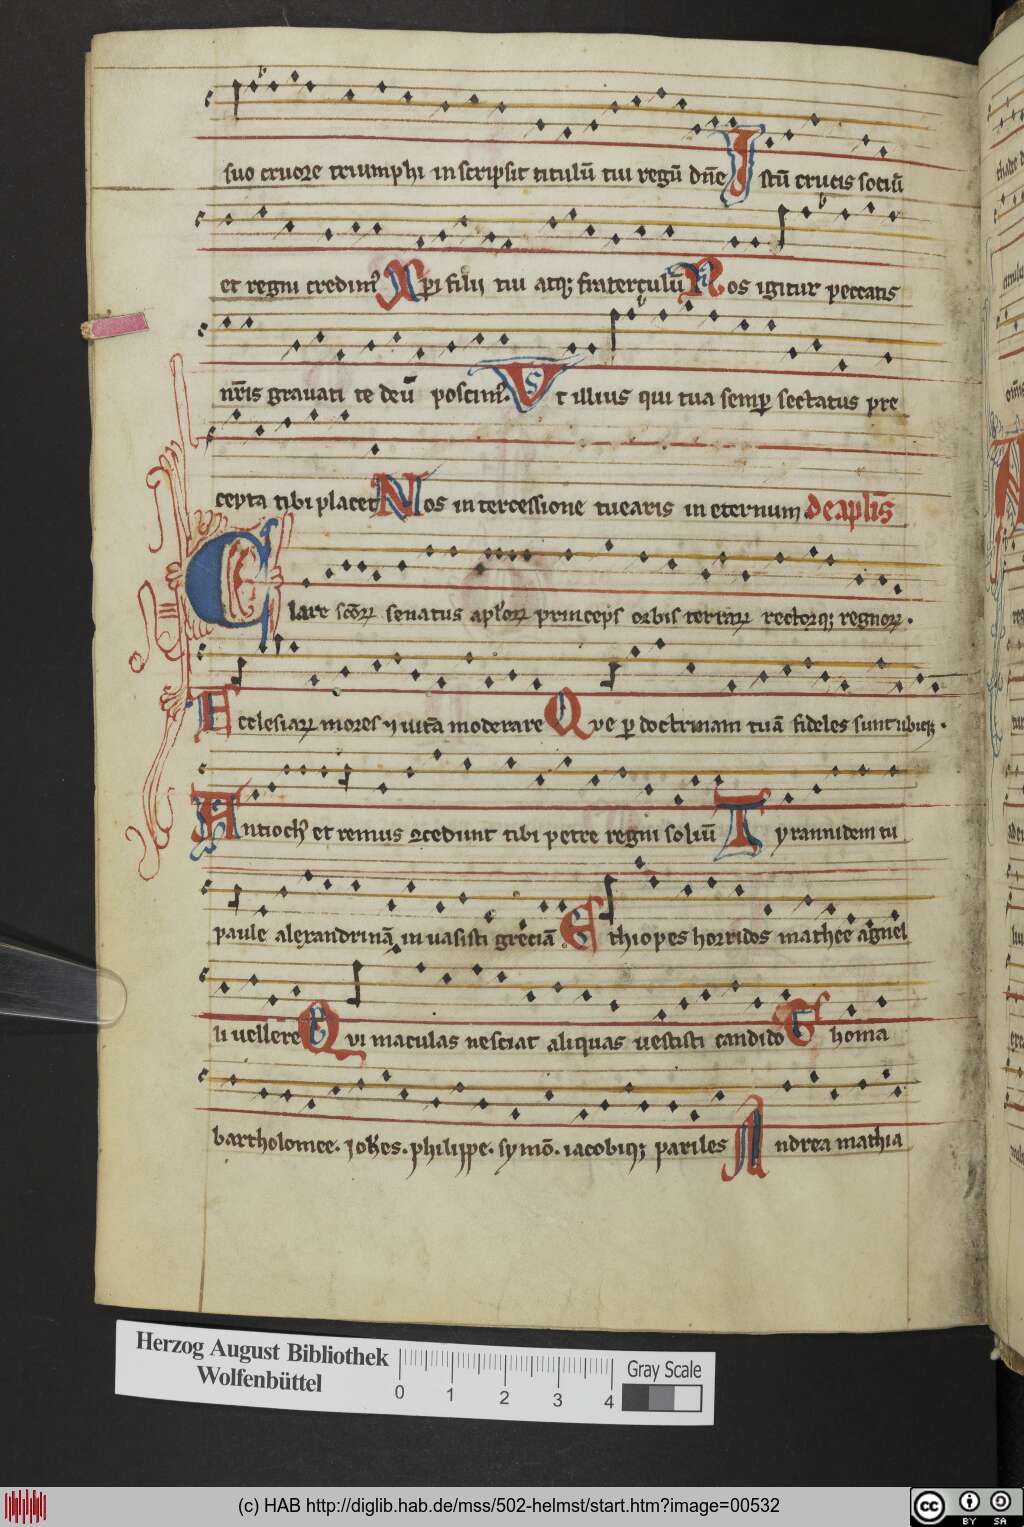 suo cruore triumphi inscripsit titulū tui regū dn̄e Istū crucis sociū
et regni credimꝰ Xp̄i filii tui atqꝫ fraterculū Nos igitur peccatis
nr̄is grauati te deū poscimꝰ Vt illius qui tua semꝑ sectatus pre
cepta tibi placet Nos intercessione tuearis in eternum de apl̄is
Clare sc̄oꝝ senatus apl̄oꝝ princeps orbis terrarꝝ rectorqꝫ regnoꝝ.
Ecclesiarꝝ mores ⁊ uitā moderare Que ꝑ doctrinam tuā fideles sunt ubiqꝫ.
Antiochꝰ et remus ꝯcedunt tibi petre regni soliū Tyrannidem tu
paule alexandrinā inuasisti greciā Ethiopes horridos mathee agnel
li uellere Qui maculas nesciat aliquas uestisti candido Thoma
bartholomee. Joh̄es. philippe. symō. iacobiqꝫ pariles Andrea mathia
Herzog August Bibliothek
Wolfenbüttel
0 1 2 3 4
Gray Scale
(c) HAB http://diglib.hab.de/mss/502-helmst/start.htm?image=00532
cc BY SA